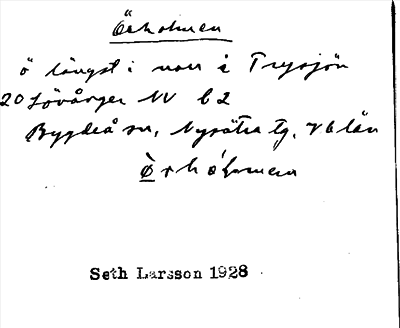 Örholmen
ö längst i norr i Trysjön
20 Lövånger NV b 2
Bygdeå sn, Nysätra tg, Vb län
Seth Larsson 1928